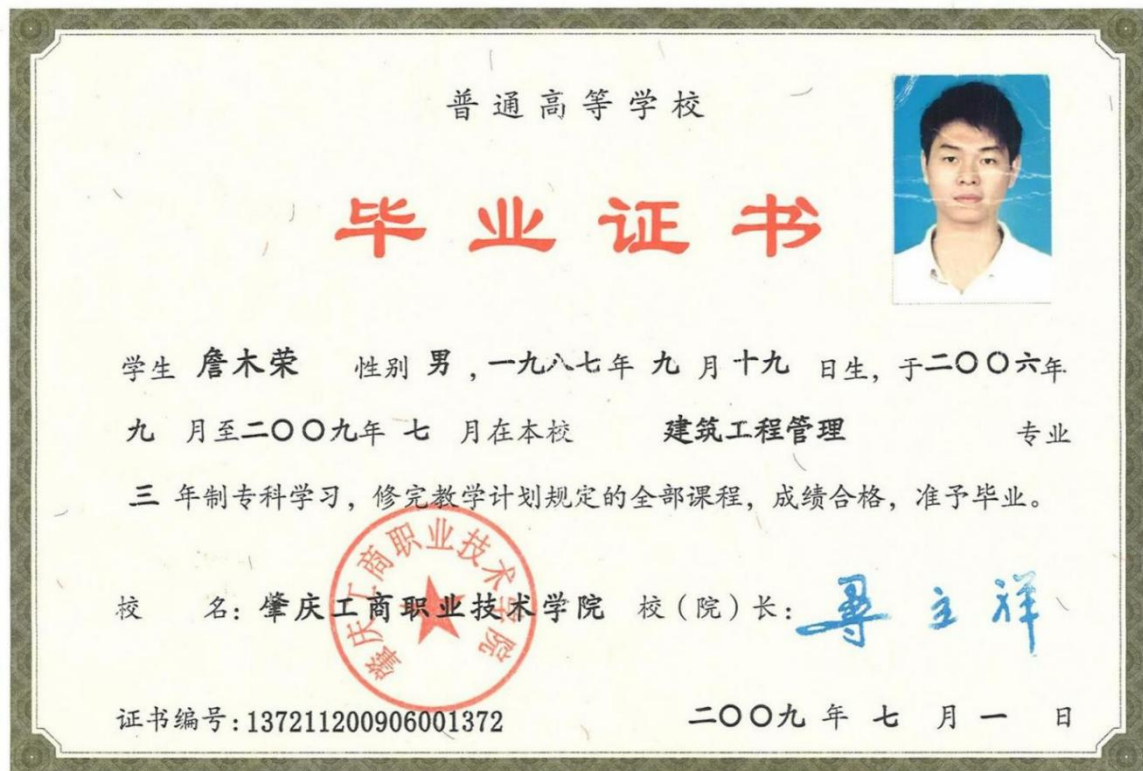 普通高等学校
毕业证书
学生 詹木荣 性别 男,一九八七年 九 月 十九 日生,于二〇〇六年
九 月至二〇〇九年 七 月在本校 建筑工程管理 专业
三 年制专科学习,修完教学计划规定的全部课程,成绩合格,准予毕业。
肇庆工商职业技术学院
校 名:肇庆工商职业技术学院 校(院)长:寻立祥
证书编号:137211200906001372 二〇〇九 年 七 月 一 日